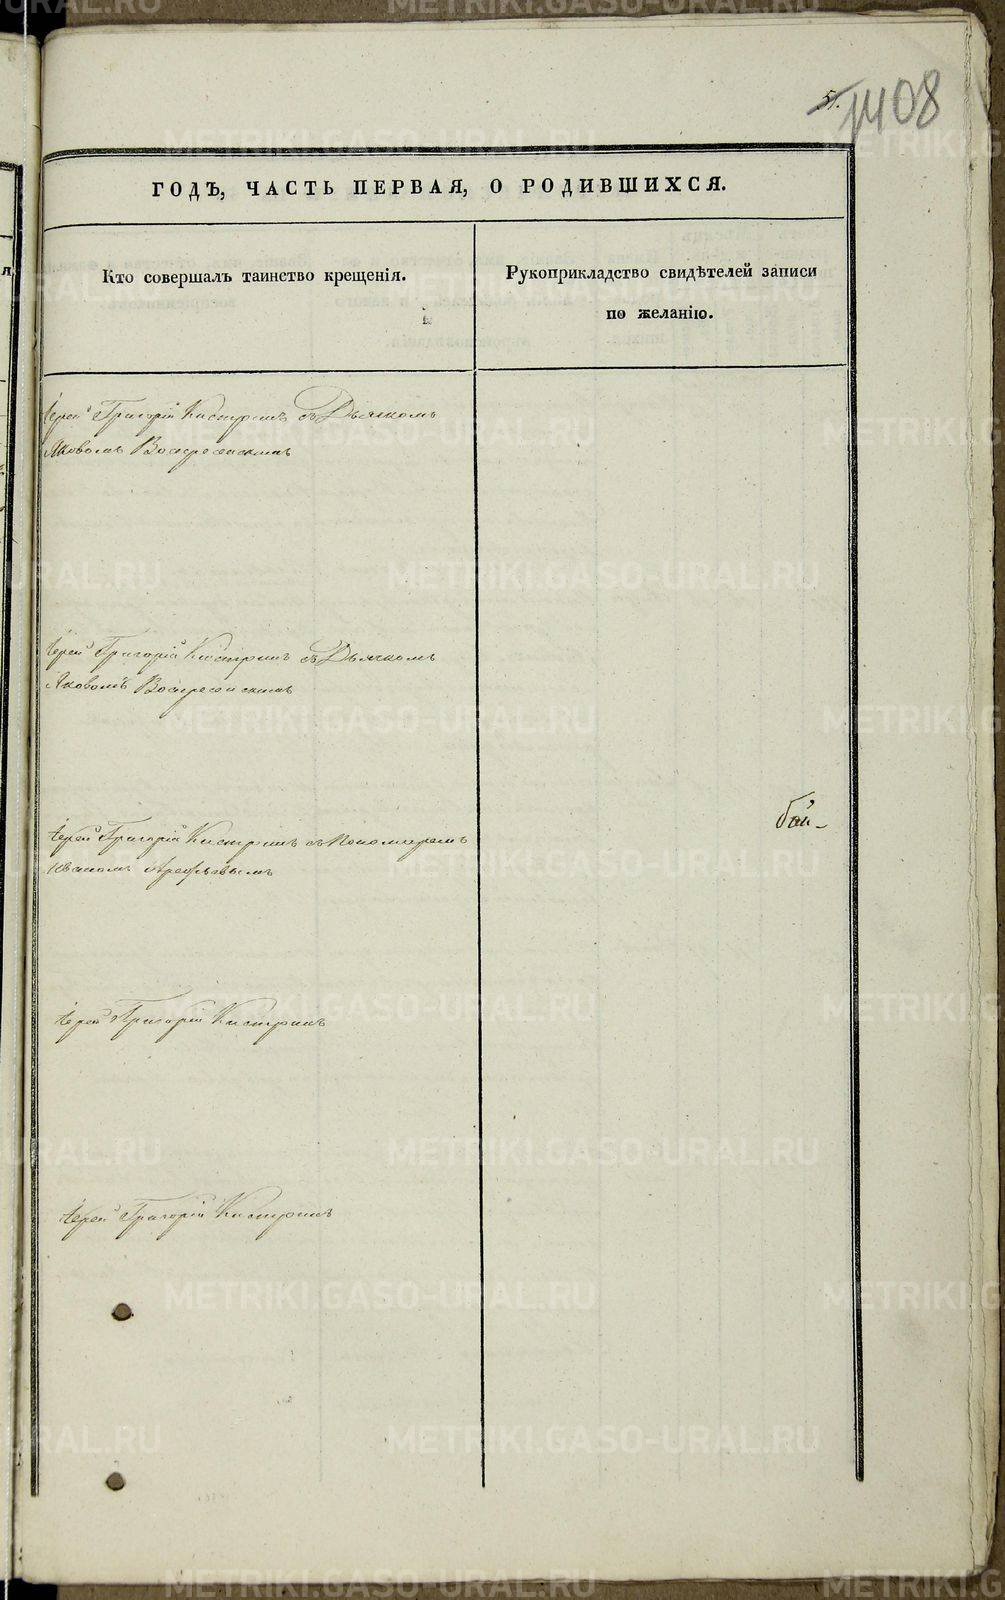 51.
1408
ГОДЪ, ЧАСТЬ ПЕРВАЯ, О РОДИВШИХСЯ.
Кто совершалъ таинство крещенія.
Рукоприкладство свидѣтелей записи
по желанію.
Іерей Григорій Кистринъ съ Дьячкомъ
Яковомъ Воскресенскимъ
Іерей Григорій Кистринъ съ Дьячкомъ
Яковомъ Воскресенскимъ
Іерей Григорій Кистринъ съ Пономаремъ
Иваномъ Арефьевымъ
Іерей Григорій Кистринъ
Іерей Григорій Кистринъ
METRIKI.GASO-URAL.RU